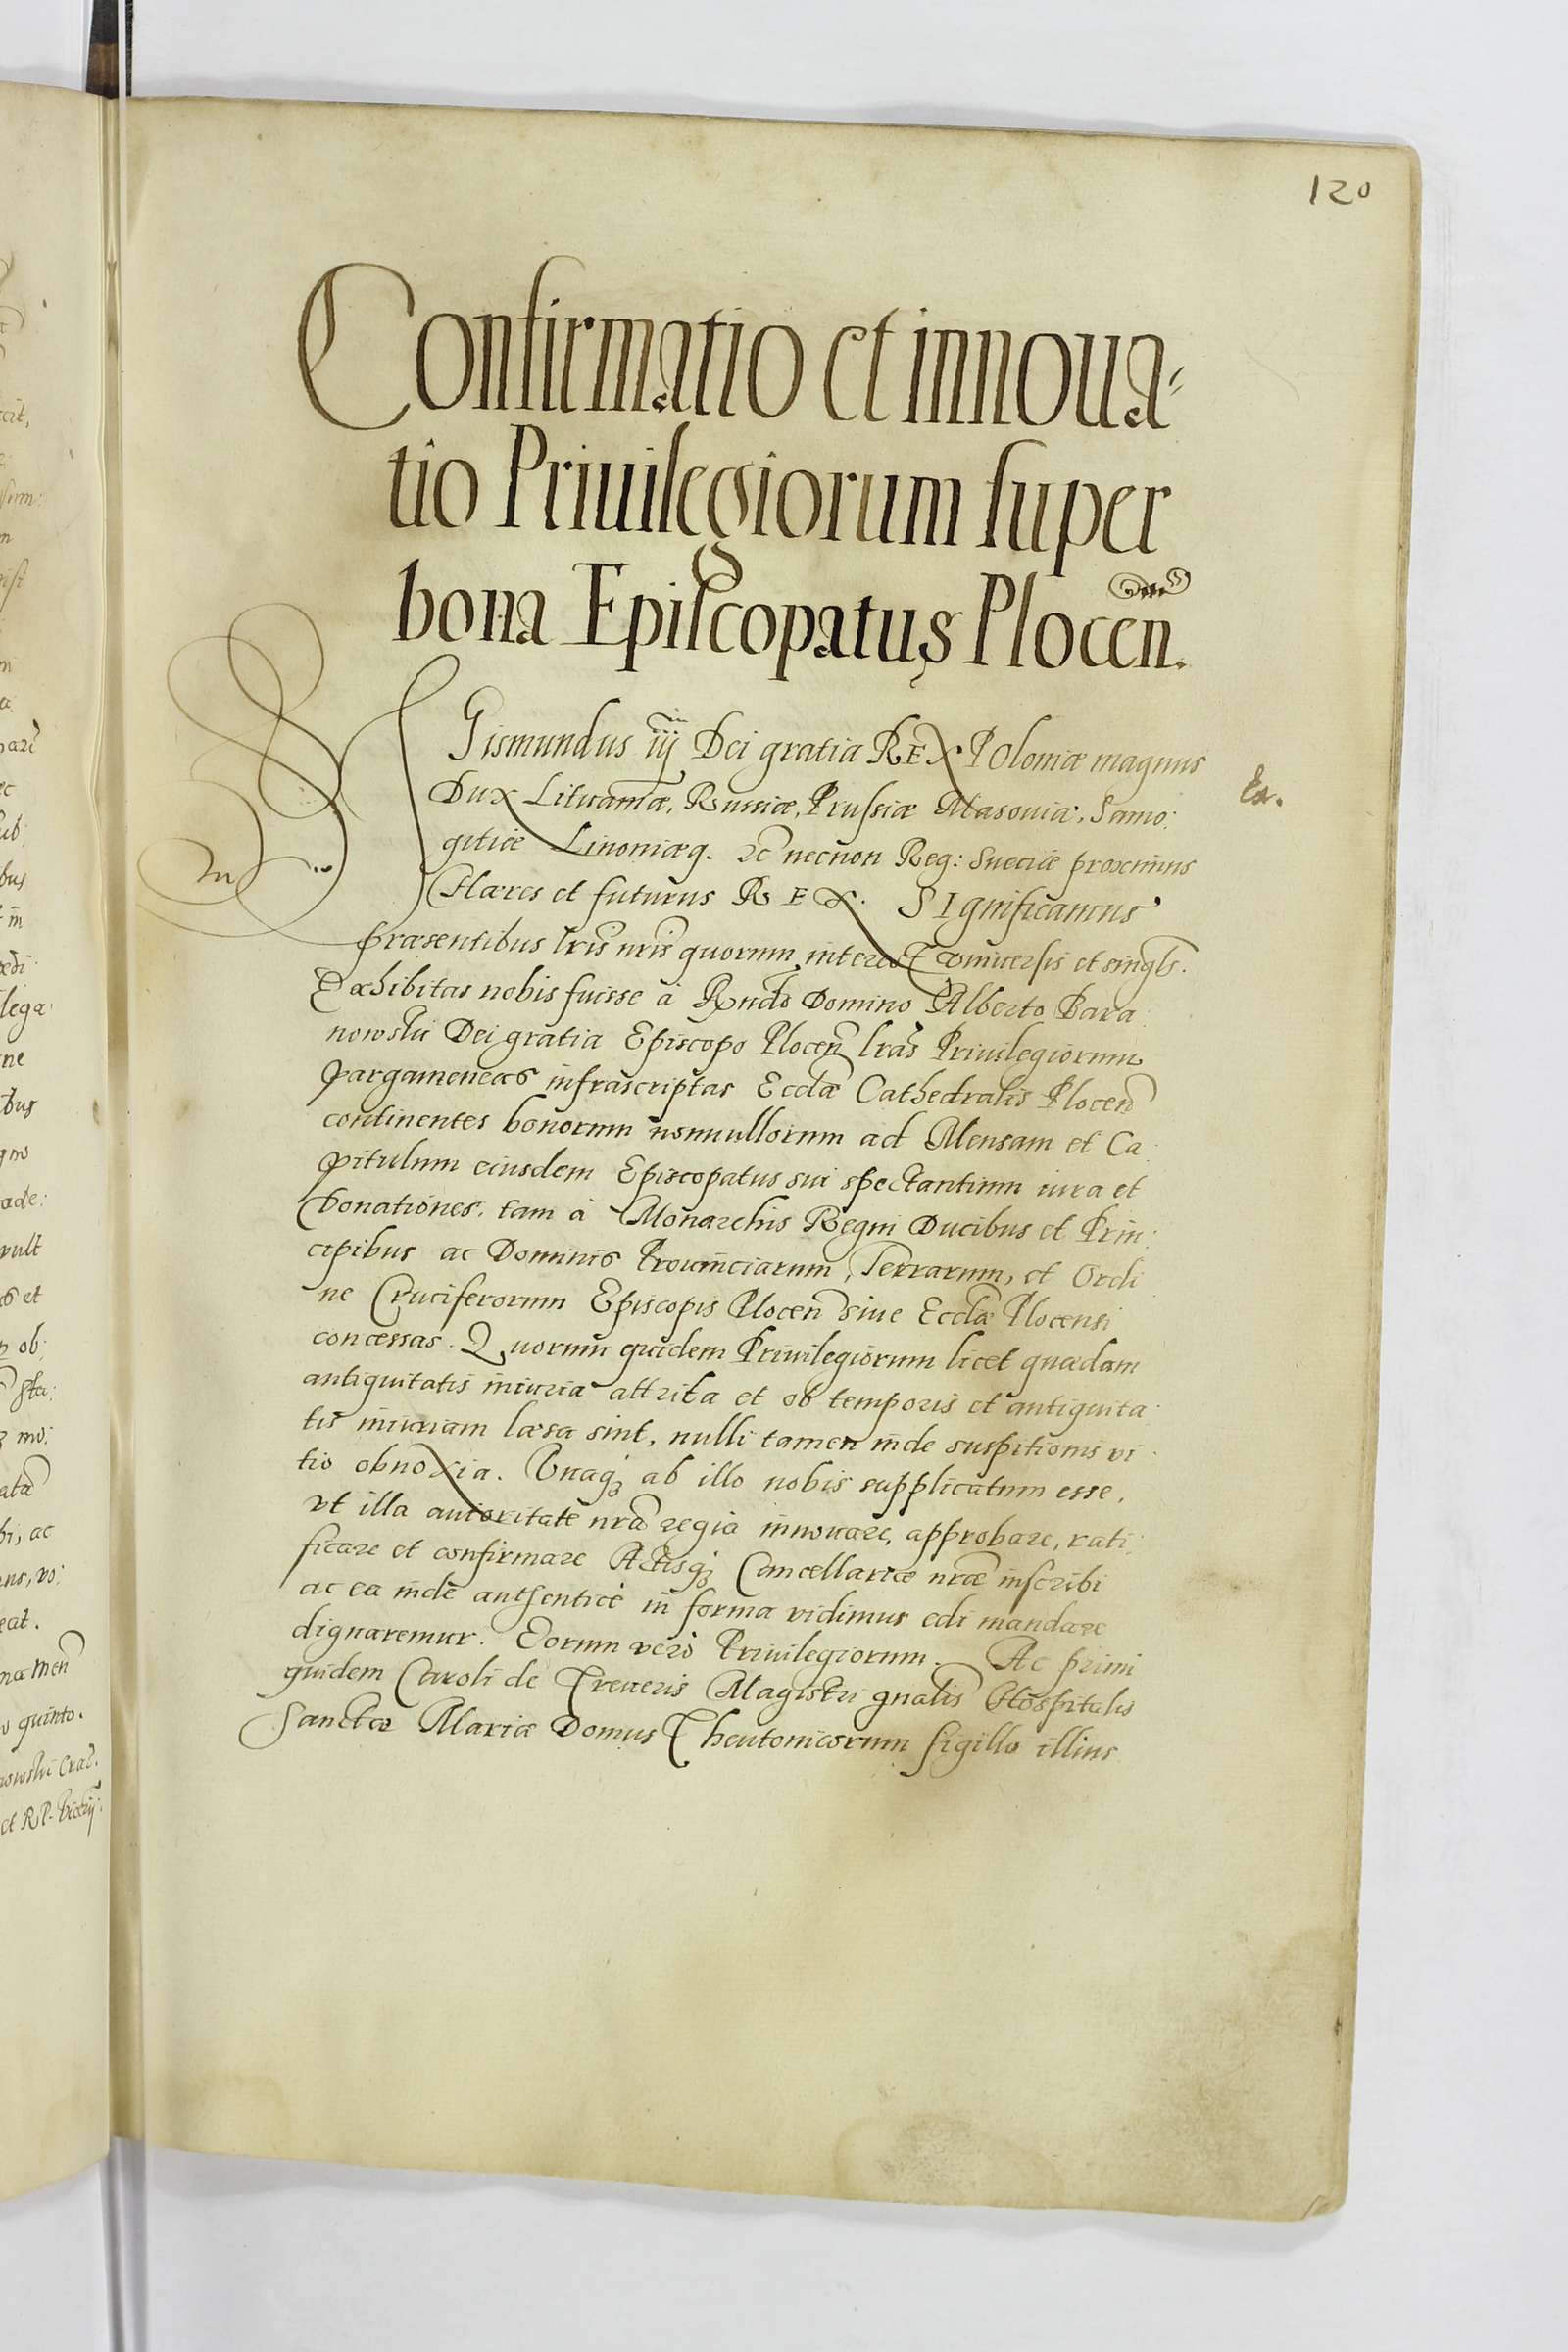 120
Confirmatio et innoua-
tio Priuilegiorum super
bona Episcopatus Plocen.
SIgismundus iij Dei gratia REX POloniæ magnus
Dux Lituaniæ, Russiæ, Prussiæ Masouiæ, Samo:
gitiæ Liuoniæq. &c necnon Reg: Sueciæ proximus
Hæres et futurus REX. SIgnificamus
præsentibus lris nris quorum interest vniuersis et singlis.
Exhibitas nobis fuisse à Rndo Domino Alberto Bara:
nowski Dei gratia Episcopo Plocen lras Priuilegiorum
pargameneas infrascriptas Ecclæ Cathedralis Plocen
continentes bonorum nonnullorum ad Mensam et Ca:
pitulum eiusdem Episcopatus sui spectantium iura et
Donationes, tam à Monarchis Regni Ducibus et Prin:
cipibus ac Dominis Prouinciarum, Terrarum, et Ordi:
ne Cruciferorum Episcopis Plocen siue Ecclæ Plocensi
concessas. Quorum quidem Priuilegiorum licet quædam
antiquitatis iniuria attrita et ob temporis et antiquita:
tis iniuriam læsa sint, nulli tamen inde suspitionis vi:
tio obnoxia. Vnaq; ab illo nobis supplicatum esse,
vt illa autoritate nra regia innouare, approbare, rati:
ficare et confirmare Actisq; Cancellariæ nræ inscribi
ac ea inde authenticè in forma vidimus edi mandare
dignaremur. Eorum verò Priuilegiorum. Ac primi
quidem Caroli de Treueris Magistri gnalis Hospitalis
Sanctæ Mariæ Domus Theutonicorum sigillo illius